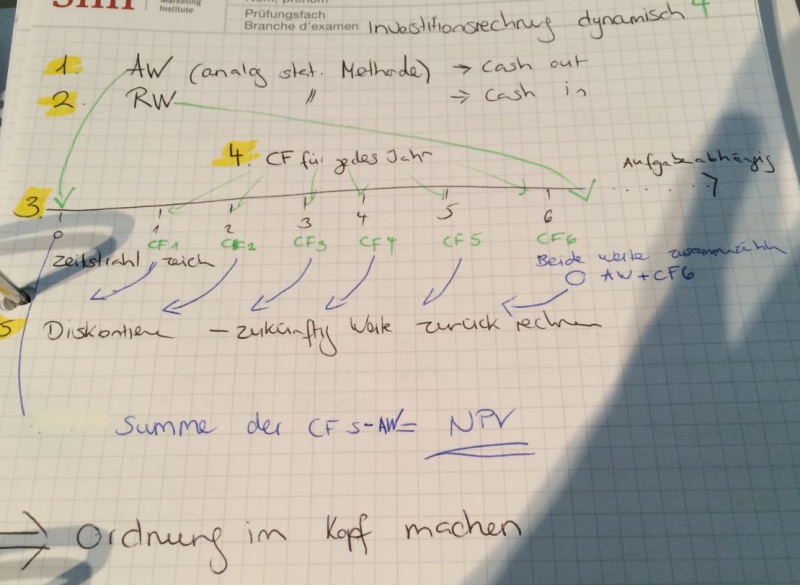 Marketing
Institute
Prüfungsfach
Branche d'examen Investitionsrechnung dynamisch 4
1. AW (analog stat. Methode) → Cash out
2. RW " → Cash in
4. CF für jedes Jahr
Aufgabeabhängig
3.
0 1 2 3 4 5 6
CF1 CF2 CF3 CF4 CF5 CF6
Zeitstrahl zeich
Beide Werte zusammenzähln
AW + CF6
5 Diskontiere – zukünftig Werte zurück rechnen
Summe der CFs-AW= NPV
⇒ Ordnung im Kopf machen